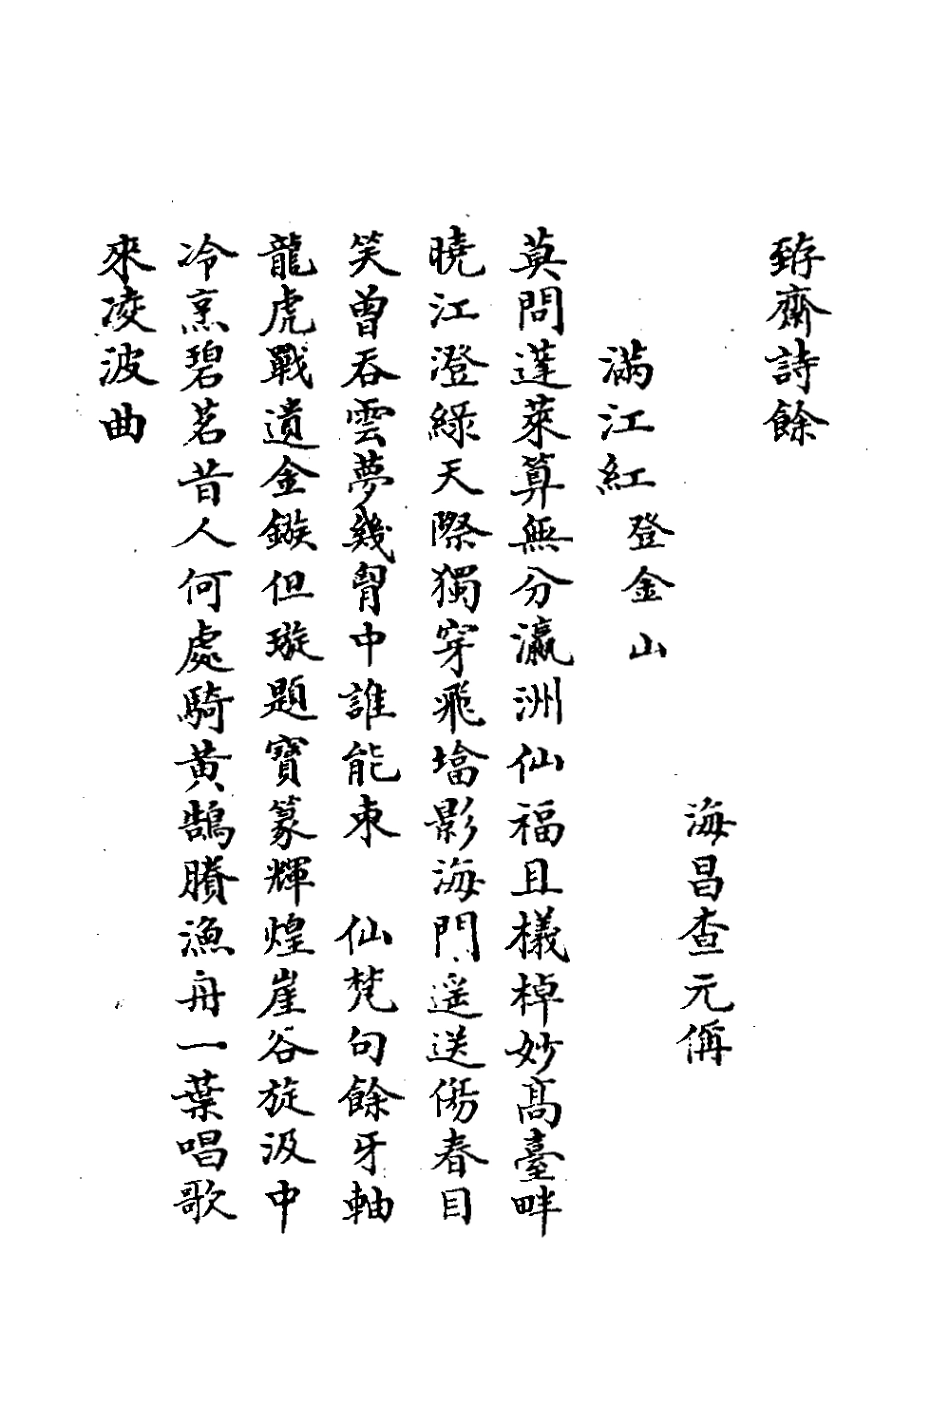 臶齋詩餘
海昌查元偁
滿江紅 登金山
莫問蓬萊算無分瀛洲仙福且檥棹妙高臺畔
曉江澄綠天際獨穿飛墖影海門遥送傷春目
笑曽吞雲夢幾胷中誰能束 仙梵句餘牙軸
龍虎戰遺金鏃但璇題寶篆輝煌崖谷旋汲中
冷烹碧茗昔人何處騎黄鵠賸漁舟一葉唱歌
來凌波曲